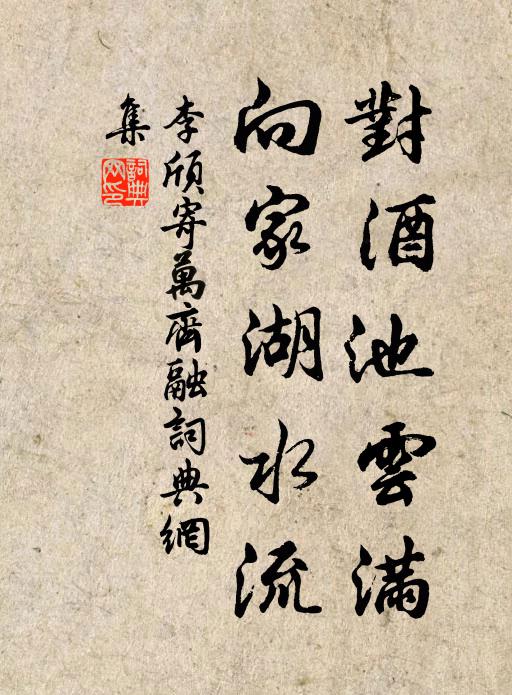 對酒池雲滿
向家湖水流
李頎寄萬齊融詞典網
集
詞典
网印